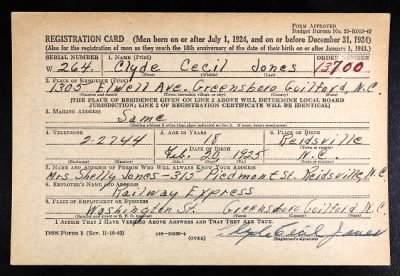 FORM APPROVED
Budget Bureau No. 33-R012-42
REGISTRATION CARD (Men born on or after July 1, 1924, and on or before December 31, 1924)
(Also for the registration of men as they reach the 18th anniversary of the date of their birth on or after January 1, 1943.)
SERIAL NUMBER 1. NAME (Print) ORDER NUMBER
W. 264. Clyde Cecil Jones 13700
(First) (Middle) (Last)
2. PLACE OF RESIDENCE (Print)
1305 Elwell Ave. Greensboro Guilford, N.C.
(Number and street) (Town, township, village, or city) (County) (State)
[THE PLACE OF RESIDENCE GIVEN ON LINE 2 ABOVE WILL DETERMINE LOCAL BOARD
JURISDICTION; LINE 2 OF REGISTRATION CERTIFICATE WILL BE IDENTICAL]
3. MAILING ADDRESS
Same
4. TELEPHONE 5. AGE IN YEARS 6. PLACE OF BIRTH
18 Reidsville
2-2744 DATE OF BIRTH
Feb. 20 1925 N.C.
7. NAME AND ADDRESS OF PERSON WHO WILL ALWAYS KNOW YOUR ADDRESS
Mrs. Shelly Jones-313 Piedmont St. Reidsville, N.C.
8. EMPLOYER'S NAME AND ADDRESS
Railway Express
9. PLACE OF EMPLOYMENT OR BUSINESS
Washington St. Greensboro Guilford N.C.
(Number and street) (Town) (County) (State)
I AFFIRM THAT I HAVE VERIFIED ABOVE ANSWERS AND THAT THEY ARE TRUE.
DSS Form 1 (Rev. 11-16-42) (OVER) Clyde Cecil Jones
(Registrant's signature)